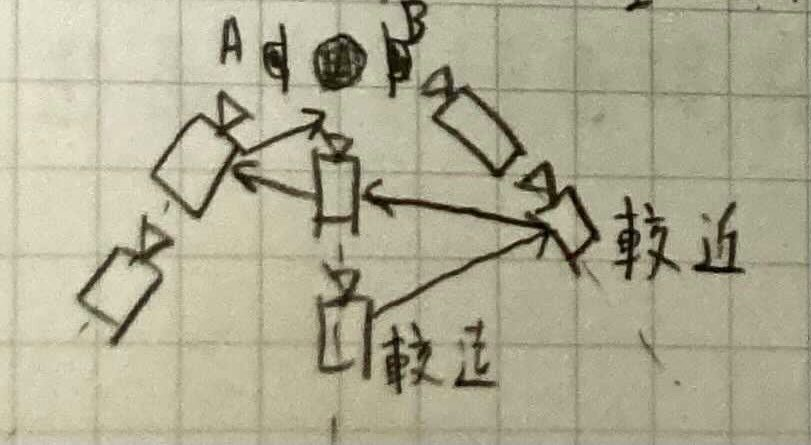 A B
較近
較遠